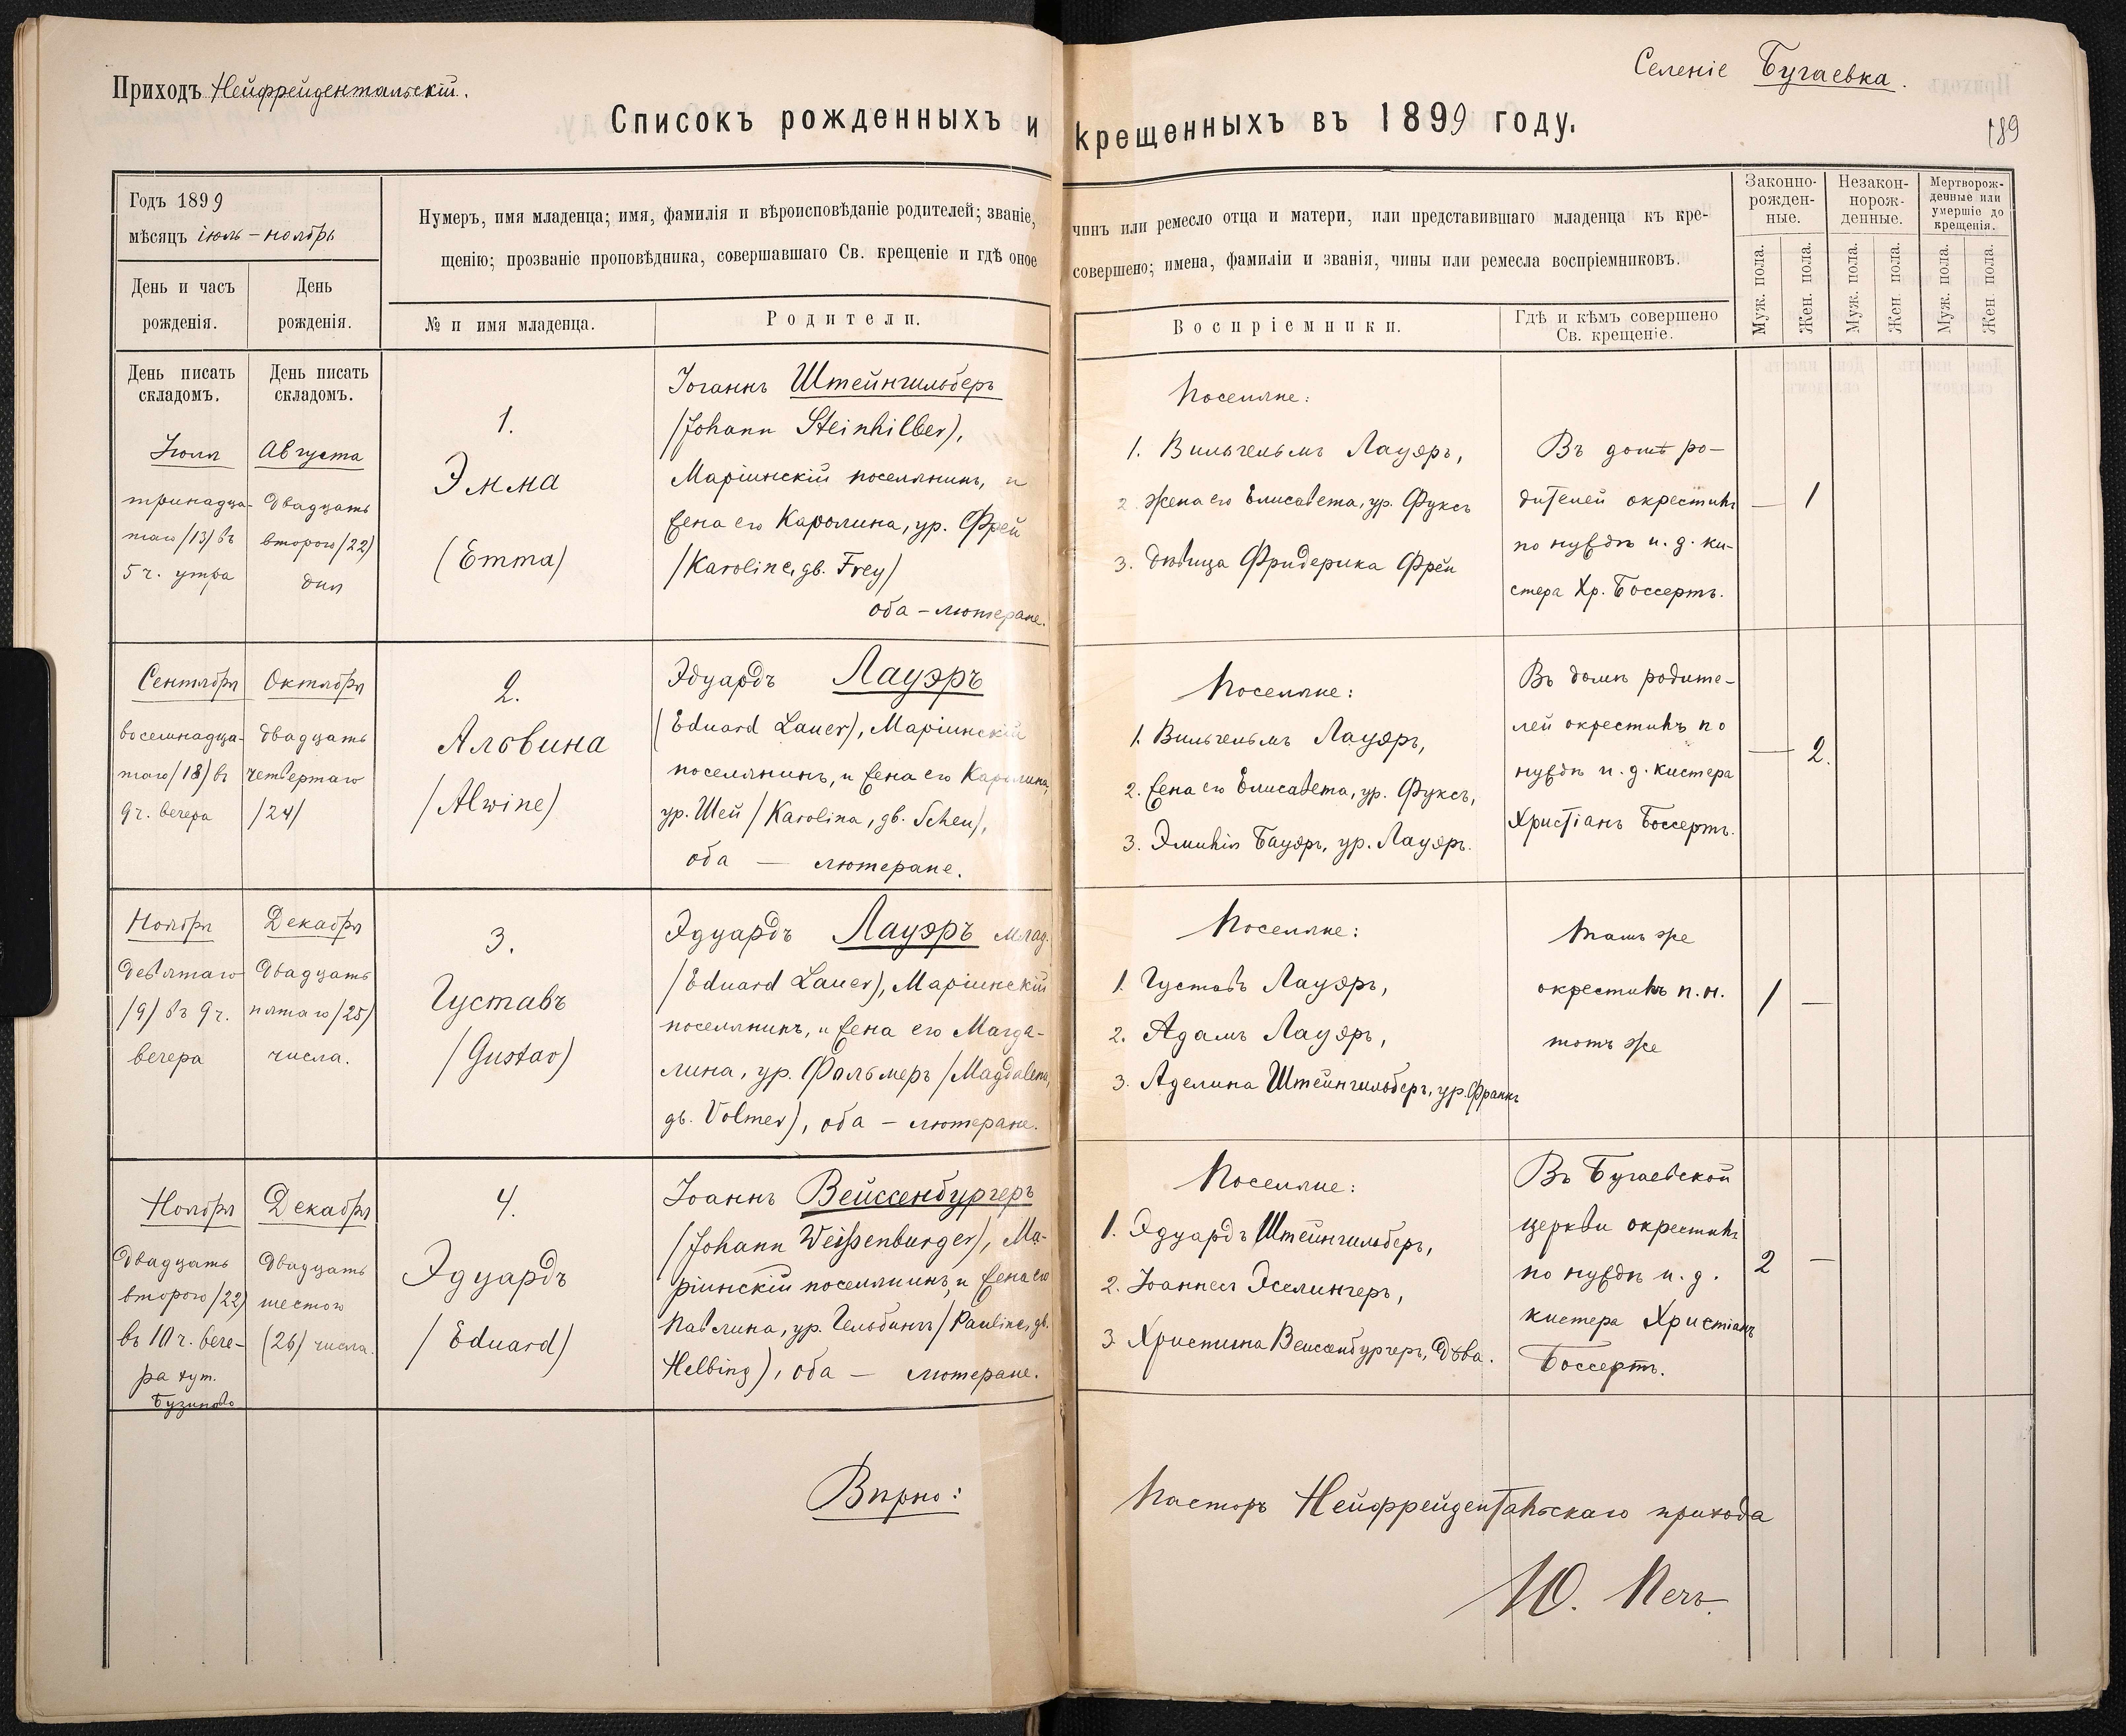 Приходъ Нейфрейдентальскій.
Селеніе Бугаевка.
Списокъ рожденныхъ и крещенныхъ въ 1899 году.
189
Годъ 1899
мѣсяцъ іюль – ноябрь
День и часъ
рожденія.
День
рожденія.
Нумеръ, имя младенца; имя, фамилія и вѣроисповѣданіе родителей; званіе, чинъ или ремесло отца и матери, или представившаго младенца къ кре-
щенію; прозваніе проповѣдника, совершавшаго Св. крещеніе и гдѣ оное совершено; имена, фамиліи и званія, чины или ремесла воспріемниковъ.
№ и имя младенца.
Родители.
Воспріемники.
Гдѣ и кѣмъ совершено
Св. крещеніе.
Законно-
рожден-
ные.
Незакон-
норож-
денные.
Мертворож-
денные или
умершіе до
крещенія.
Муж. пола.
Жен. пола.
Муж. пола.
Жен. пола.
Муж. пола.
Жен. пола.
День писать
складомъ.
День писать
складомъ.
Іюля
тринадца-
таго /13/ въ
5 ч. утра
Августа
двадцать
второго /22/
дня
1.
Эмма
(Emma)
Іоганнъ Штейнгильберъ
(Johann Steinhilber),
Маріинскій поселянинъ, и
жена его Каролина, ур. Фрей
/Karoline, gb. Frey/
оба – лютеране.
Поселяне:
1. Вильгельмъ Лауэръ,
2. жена его Елисавета, ур. Фуксъ
3. дѣвица Фридерика Фрей
Въ домѣ ро-
дителей окрестилъ
по нуждѣ и. д. ки-
стера Хр. Боссертъ.
— 1
Сентября
восемнадца-
таго /18/ въ
9 ч. вечера
Октября
двадцать
четвертаго
/24/
2.
Альвина
/Alwine)
Эдуардъ Лауэръ
(Eduard Lauer), Маріинскій
поселянинъ, и жена его Каролина,
ур. Шей /Karolina, gb. Scheu),
оба — лютеране.
Поселяне:
1. Вильгельмъ Лауэръ,
2. жена его Елисавета, ур. Фуксъ,
3. Эмилія Бауэръ, ур. Лауэръ.
Въ домѣ родите-
лей окрестилъ по
нуждѣ и. д. кистера
Христіанъ Боссертъ.
— 2.
Ноября
девятаго
/9/ въ 9 ч.
вечера
Декабря
двадцать
пятаго /25/
числа.
3.
Густавъ
/Gustav)
Эдуардъ Лауэръ млад.
/Eduard Lauer), Маріинскій
поселянинъ, и жена его Магда-
лина, ур. Фольмеръ /Magdalena,
gb. Volmer), оба – лютеране.
Поселяне:
1. Густавъ Лауэръ,
2. Адамъ Лауэръ,
3. Аделина Штейнгильберъ, ур. Франкъ
Тамъ же
окрестилъ п. н.
тотъ же
1 —
Ноября
двадцать
второго /22/
въ 10 ч. вече-
ра хут.
Декабря
двадцать
шестого
(26) числа.
4.
Эдуардъ
/Eduard)
Іоаннъ Вейссенбургеръ
(Johann Weißenburger), Ма-
ріинскій поселянинъ, и жена его
Павлина, ур. Гельбингъ /Pauline, gb.
Helbing), оба — лютеране.
Поселяне:
1. Эдуардъ Штейнгильберъ,
2. Іоаннесъ Эселингеръ,
3. Христина Вейссенбургеръ, дѣва.
Въ Бугаевской
церкви окрестилъ
по нуждѣ и. д.
кистера Христіанъ
Боссертъ.
2 —
Вѣрно:
Пасторъ Нейфрейдентальскаго прихода
Ю. Печъ.